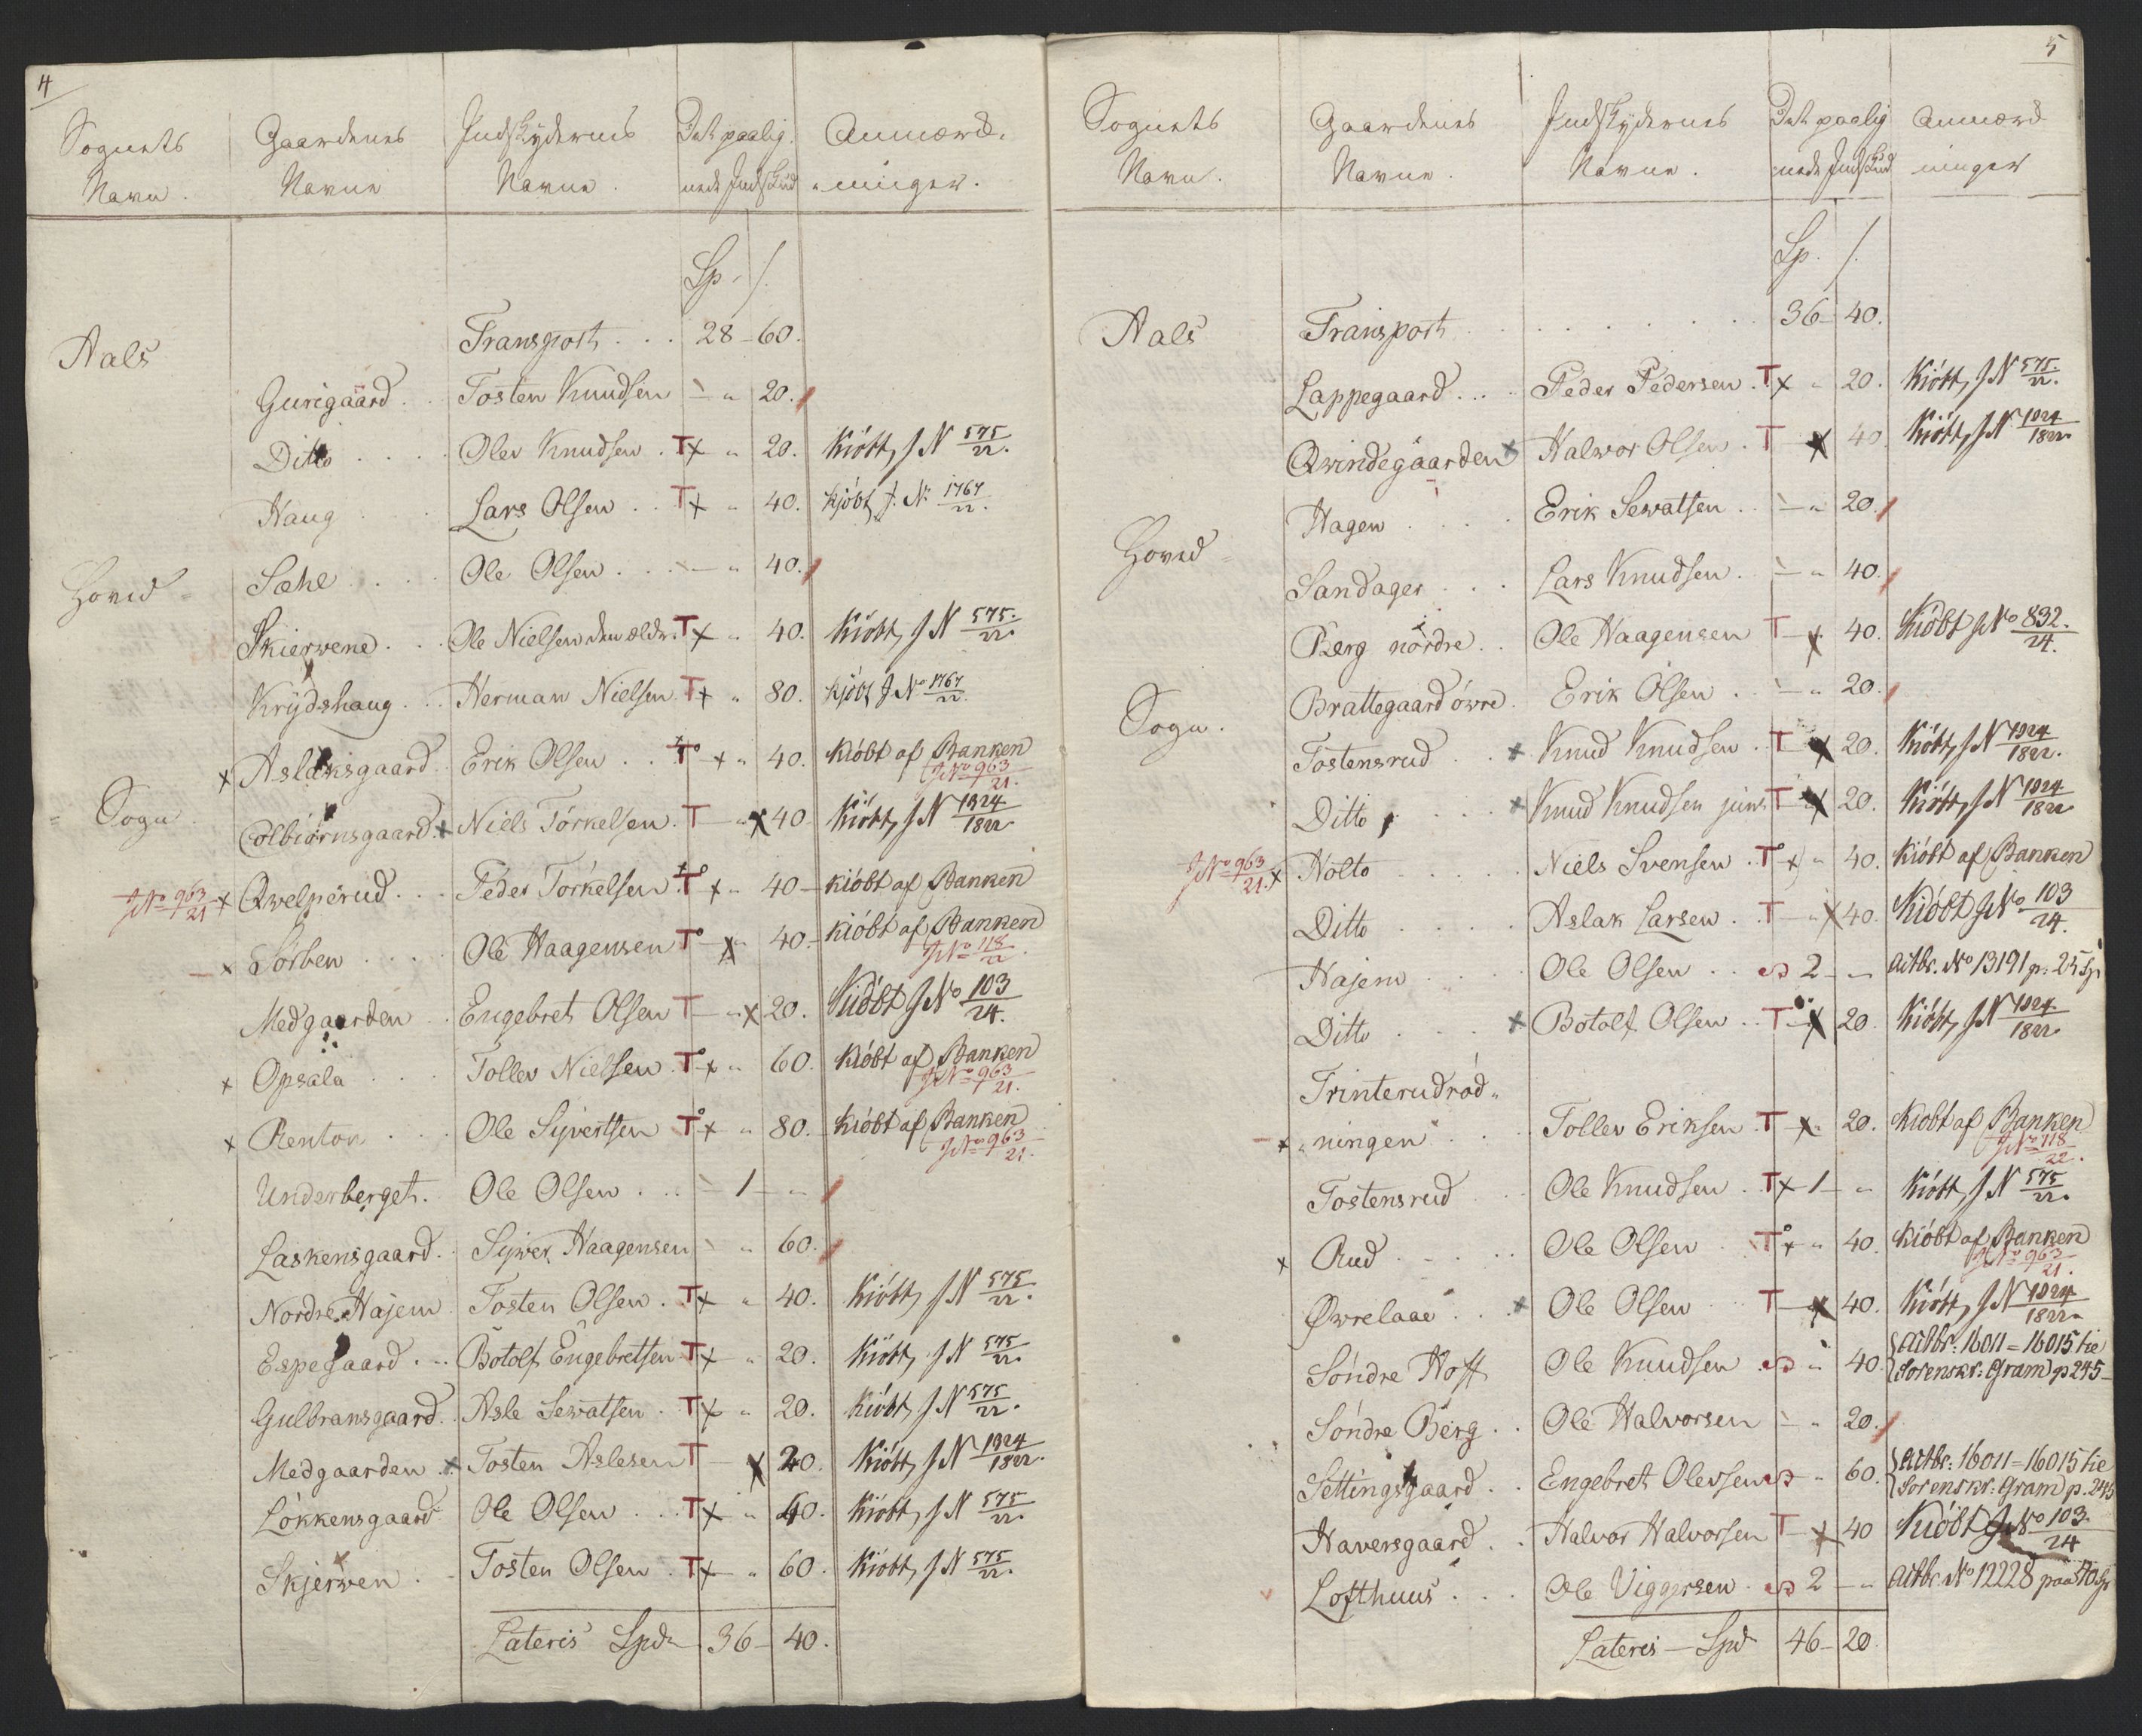 4
Sognets Navn. Gaardenes Navne Indskydernes Navne. Det paalignede Indskud Anmærkninger.
Sp. s.
Aals Transport . . . 28 - 60.
Gurigaard . . Tosten Knudsen - " 20.
Ditto . . . . Olev Knudsen . T x " 20. Kióbt, J N 575/22.
Haug . . . Lars Olsen . . T x " 40. kjóbt J. N. 1767/22.
Hoved= Sæhl . . . . Ole Olsen . . . - " 40.
Skierwene . . . Ole Nielsen den ældr. T x " 40. Kióbt, J N 575./22.
Krydshaug . . . Herman Nielsen T x " 80. kjóbt J No 1767/22.
x Aslaksgaard . Erik Olsen . . T° x " 40. kióbt af Banken
J No 963/21.
= Sogn Colbiörnsgaard. x Niels Törkelsen . T - " x 40 Kióbt, J N 1324/1822
J No 963/21 x Qwelperud . . . Peder Törkelsen T° x " 40 - kióbt af Banken
- x Sörben . . . . Ole Haagensen T° - x " 40. - kióbt af Banken
J No 118/22.
Medgaarden . . Engebret Olsen T - " x 20. Kióbt J No 103/24.
x Opsala . . . Tollev Nielsen . T° x " 60. kióbt af Banken
J No 963/21.
x Renton . . . Ole Syvertsen T° x " 80. kióbt af Banken
J No 963/21.
Underberget. Ole Olsen . . . - 1 - "
Laskensgaard. . Syver Haagensen " 60.
Nordre Hajem . Tosten Olsen . T x " 40. Kióbt, J N 575/22.
Espegaard . . . Botolf Engebretsen T x " 20. Kióbt, J N 575/22.
Gulbransgaard. . Asle Sewatsen . T x " 20. Kióbt, J N 575/22.
Medgaarden . x Tosten Aslesen T - x 20. Kióbt, J N 1324/1822.
Lökkensgaard Ole Olsen . . . T x " 40. Kióbt, J N 575/22.
Skjerwen . . Tosten Olsen . T x " 60. Kióbt, J N 575/22.
Lateris Spd 36 - 40.
5
Sognets Navn. Gaardenes Navne. Indskydernes Navne. Det paalignede Indskud Anmærkninger
Sp. s.
Aals Transport . . . . . . . . 36 - 40.
Lappegaard . . . Peder Pedersen . T x " 20. Kióbt, J N 575./22.
Qwindegaarden x Halwor Olsen . T x 40 Kióbt, J N 1324/1822.
Hagen . . . . Erik Sewatsen . . - " 20.
Hoved= Sandager . . . Lars Knudsen . - " 40.
Berg nordre . . Ole Haagensen T - x 40. Kióbt J No 832./24.
Brattegaard öwre . Erik Olsen . - " 20.
Sogn. Tostensrud . . x Knud Knudsen . T x 20. Kióbt, J N 1324/1822.
Ditto . . . . x Knud Knudsen jun. T x 20. Kióbt, J N 1324/1822
J No 963/21. x Holto . . . . . Niels Svensen . T° x " 40. kióbt af Banken
Ditto . . . . . Aslak Larsen . . T - " x 40. Kióbt J No 103/24.
Hajem . . . Ole Olsen . . 2 - " Actbr. No 13191 p: 25 Sp
Ditto . . . . x Botolf Olsen . . T° x 20. Kióbt, J N 1324./1822.
Trinterudröd=
- x "ningen . . . Tollev Eriksen . T x 20. Kióbt af Banken
J No 118/22.
Tostensrud . . Ole Knudsen . . T x 1 - " Kióbt, J N 575/22.
x Rud . . . . . Ole Olsen . T° x " 40. kióbt af Banken
J No 963/21.
Øwrelaae . . . x Ole Olsen . . T - x 40. Kióbt, J N 1324/1822.
Söndre Hoff Ole Knudsen " 40. Actbr: 16011 = 16015 tie
Sorenskr: Gram p 245 -
Söndre Berg . . Ole Halvorsen - " 20.
Settingsgaard . . Engebret Olevsen " 60. Actbr: 16011 = 16015 tie
Sorenskr: Gram p. 245
Haversgaard . . Halvor Halvorsen T - x 40 Kióbt J No 103./24
Lofthuus . . . Ole Viggersen . 2 - " Actbr. No 12228 paa 70 Sp
Lateris - Spd 46 - 20.